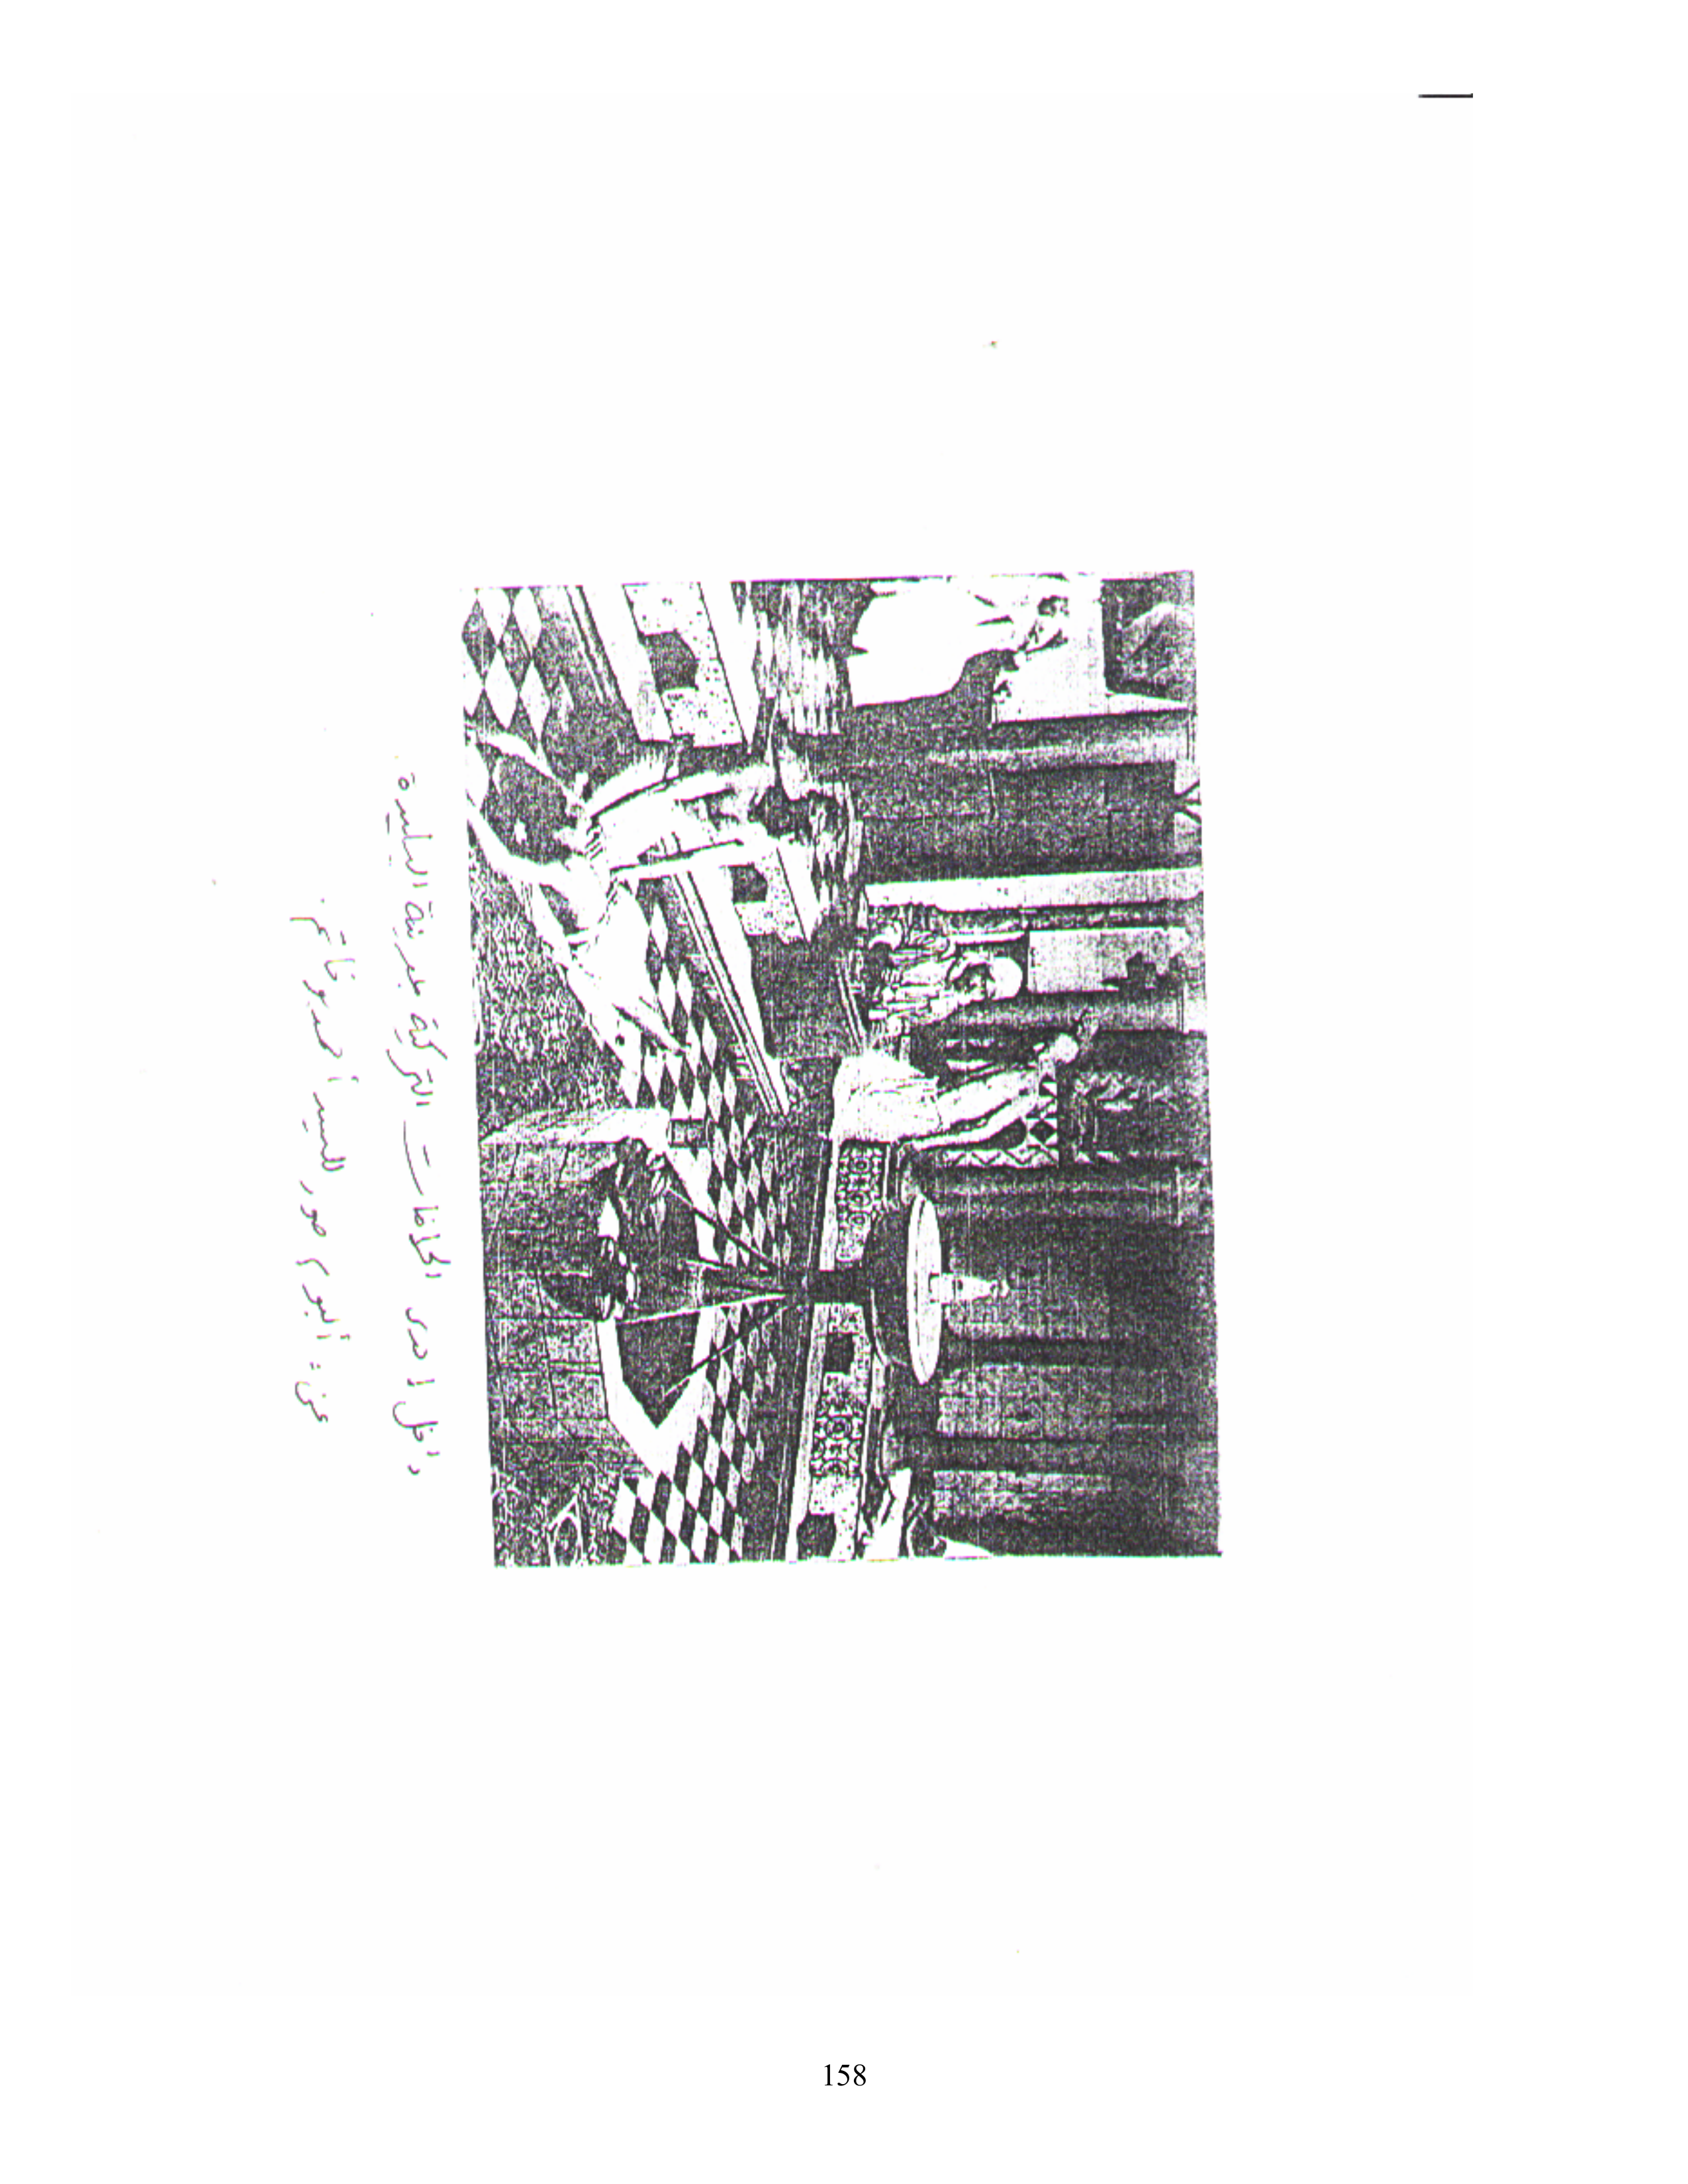 داخل احدى الحمامات التركية بمدينة البليدة
عن: ألبوم صور للسيد أحمد بوخاتم.
158